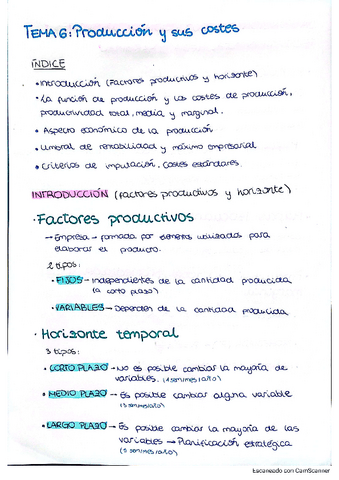 TEMA 6: Producción y sus costes
ÍNDICE
• Introducción (Factores productivos y horizonte)
• La función de producción y los costes de producción,
productividad total, media y marginal.
• Aspecto económico de la producción
• Umbral de rentabilidad y máximo empresarial
• Criterios de imputación, costes estándares.
INTRODUCCIÓN (factores productivos y horizonte)
• Factores productivos
→ Empresa → formada por elementos utilizados para
elaborar el producto.
2 tipos:
• FIJOS → Independientes de la cantidad producida
(a corto plazo)
• VARIABLES → Dependen de la cantidad producida
• Horizonte temporal
3 tipos:
• CORTO PLAZO → No es posible cambiar la mayoría de
variables.
• MEDIO PLAZO → Es posible cambiar alguna variable
• LARGO PLAZO → Es posible cambiar la mayoría de las
variables → Planificación estratégica
Escaneado con CamScanner